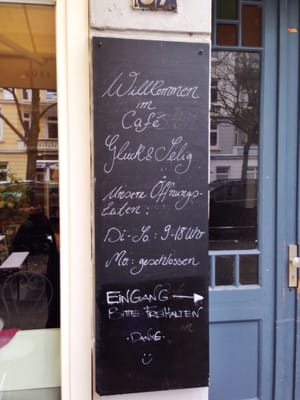 Willkommen
im
Café
Glück & Selig
Unsere Öffnungs-
zeiten:
Di-So.: 9-18 Uhr
Mo: geschlossen
EINGANG →
BITTE FREIHALTEN
·DANKE·